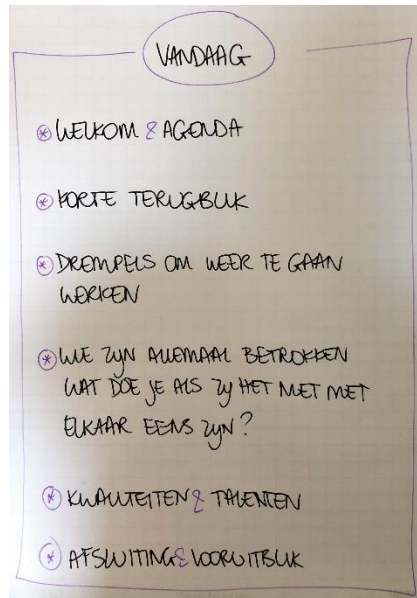 VANDAAG
* WELKOM & AGENDA
* KORTE TERUGBLIK
* DREMPELS OM WEER TE GAAN
WERKEN
* WE ZIJN ALLEMAAL BETROKKEN
WAT DOE JE ALS ZIJ HET NIET MET
ELKAAR EENS ZIJN?
* KWALITEITEN & TALENTEN
* AFSLUITING & VOORUITBLIK